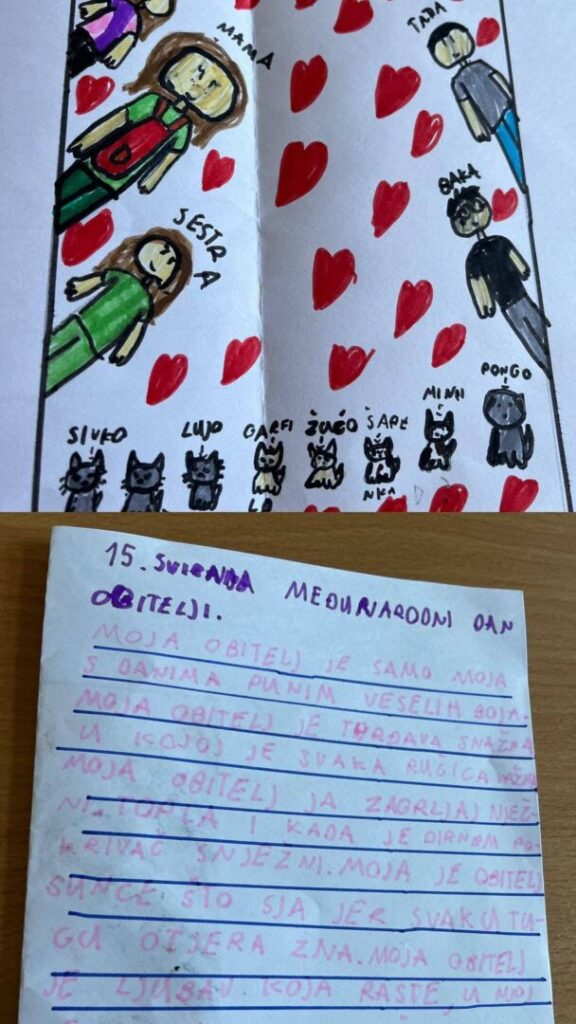 MAMA
TATA
BAKA
SESTRA
PONGO
MINII
SIVKO LUJO GARFI ŽUĆO ŠARE
LD NKA
15. SVIBNJA MEĐUNARODNI DAN
OBITELJI.
MOJA OBITELJ JE SAMO MOJA
S DANIMA PUNIM VESELIH BOJA.
MOJA OBITELJ JE TVRĐAVA SNAŽNA
U KOJOJ JE SVAKA RUČICA VAŽNA
MOJA OBITELJ JA ZAGRLJAJ NJEŽ-
NI. TOPLA I KADA JE DIRNEM PO-
KRIVAČ SNJEŽNI. MOJA JE OBITELJ
SUNCE ŠTO SJA JER SVAKU TU-
GU OTJERA ZNA. MOJA OBITELJ
JE LJUBAV KOJA RASTE, U NJOJ